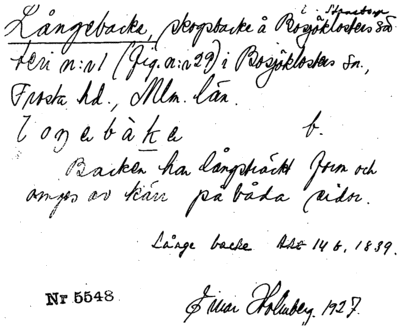 i Stensberga
Långebacke, skogsbacke å Bosjöklosters sä
teri n:r 1 (fig. n:r 29) i Bosjöklosters sn.,
Frosta hd., Mlm. län.
loŋebàke b.
Backen har långsträckt form och
omges av kärr på båda sidor.
Långe backe 14 6. 1839.
Nr 5548
Einar Holmberg. 1927.